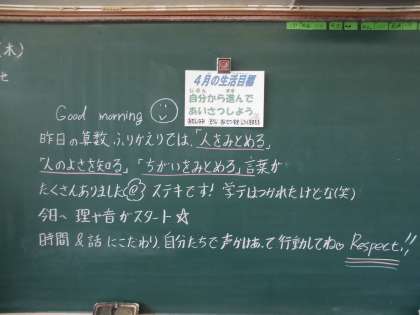 (木)
4月の生活目標
自分から進んで
あいさつしよう。
Good morning
昨日の算数ふりかえりでは、「人をみとめる」
「人のよさを知る」「ちがいをみとめる」言葉が
たくさんありました ステキです! 学テはつかれたけどな(笑)
今日〜 理+音がスタート☆
時間&話にこだわり、自分たちで声かけあって行動してね♡ Respect!!